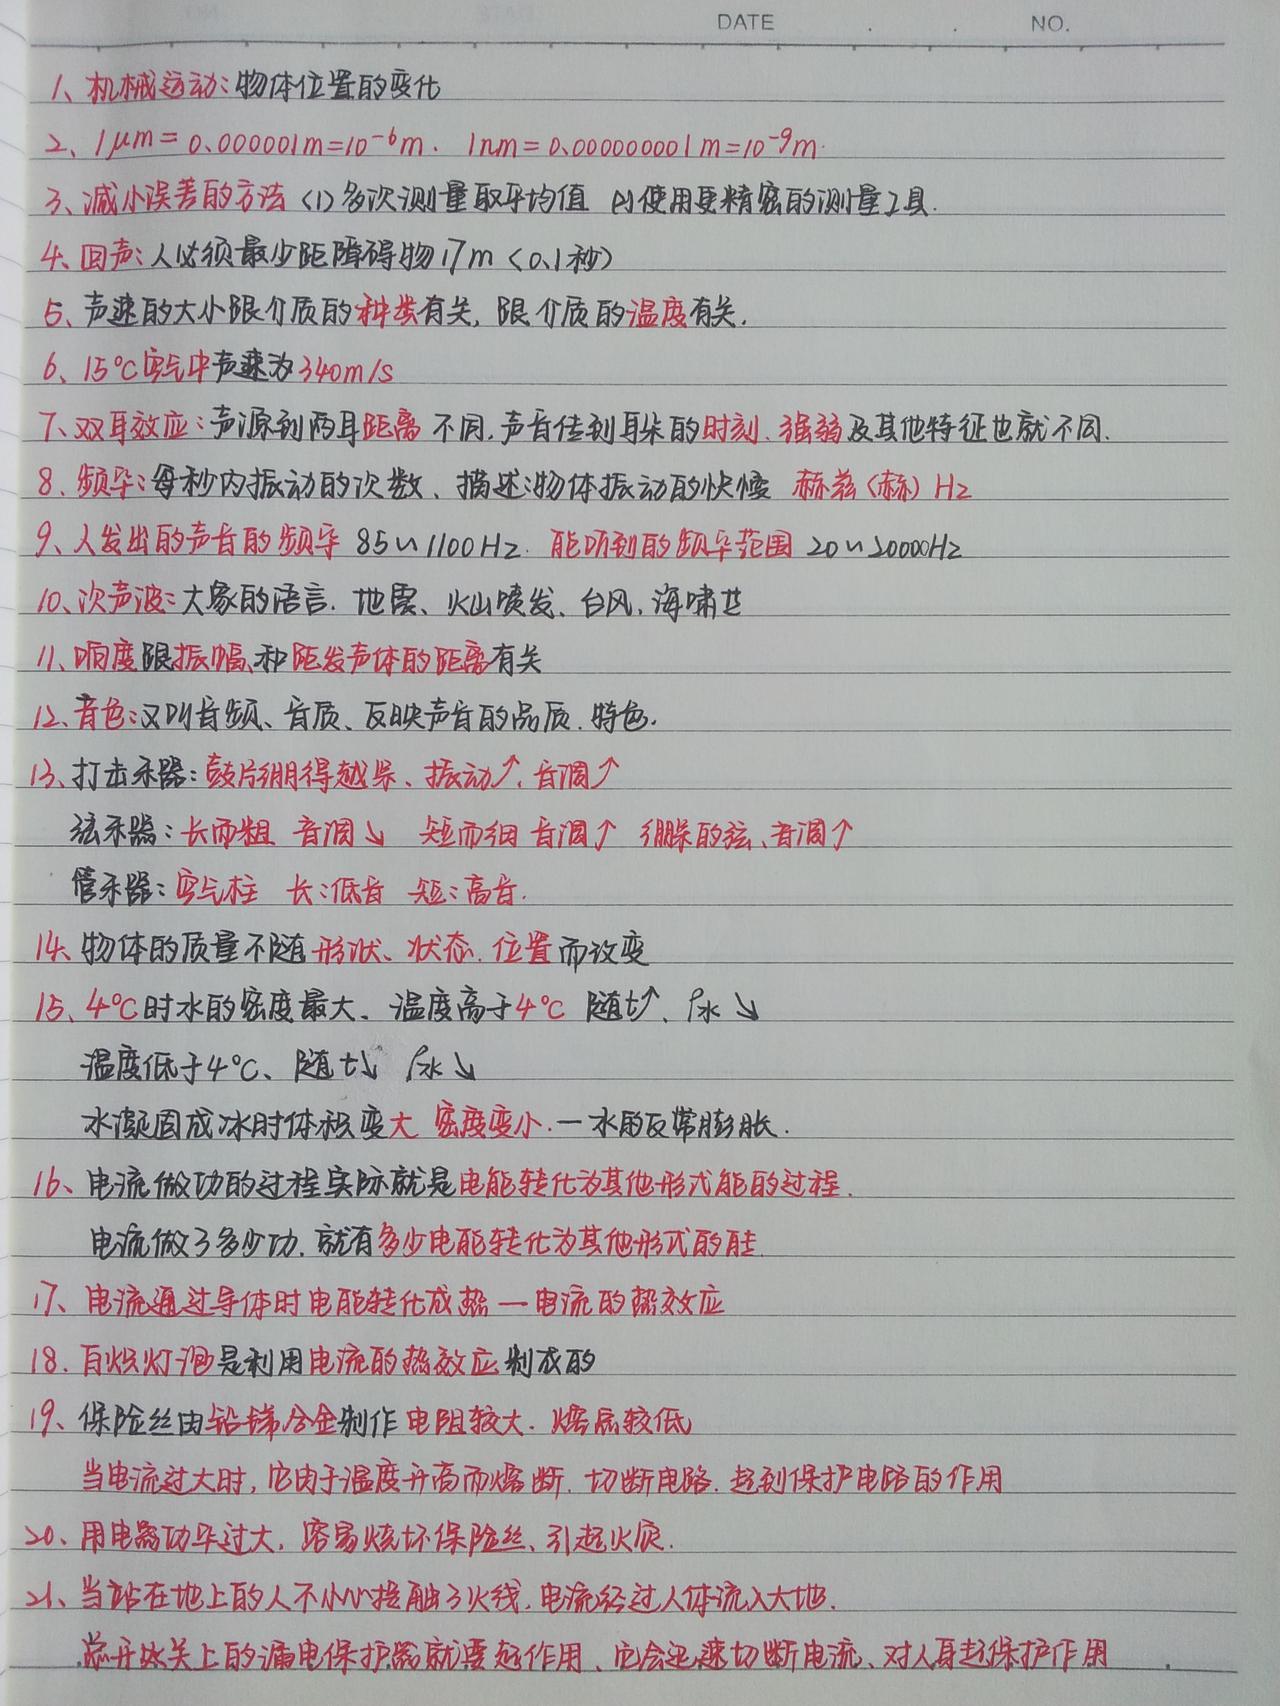 DATE . . NO.
1、机械运动：物体位置的变化
2、1μm=0.000001m=10⁻⁶m. 1nm=0.000000001m=10⁻⁹m.
3、减小误差的方法 (1)多次测量取平均值 (2)使用更精密的测量工具.
4、回声：人必须最少距障碍物17m（0.1秒）
5、声速的大小跟介质的种类有关, 跟介质的温度有关.
6、15℃空气中声速为340m/s
7、双耳效应：声源到两耳距离不同,声音传到耳朵的时刻、强弱及其他特征也就不同.
8、频率：每秒内振动的次数、描述物体振动的快慢 赫兹(赫) Hz
9、人发出的声音的频率 85~1100Hz. 能听到的频率范围 20~20000Hz
10、次声波：大象的语言. 地震、火山喷发、台风, 海啸世
11、响度跟振幅和距发声体的距离有关
12、音色：又叫音频、音质、反映声音的品质. 特色.
13、打击乐器：鼓片绷得越紧、振动↑、音调↑
弦乐器：长而粗 音调↘ 短而细 音调↑ 绷紧的弦、音调↑
管乐器：空气柱 长：低音 短：高音.
14、物体的质量不随形状、状态. 位置而改变
15、4℃时水的密度最大、温度高于4℃ 随t↑、ρ水↘
温度低于4℃、随t↘ ρ水↘
水凝固成冰时体积变大 密度变小.—水的反常膨胀.
16、电流做功的过程实际就是电能转化为其他形式能的过程.
电流做了多少功. 就有多少电能转化为其他形式的能.
17、电流通过导体时电能转化成热—电流的热效应
18. 白炽灯泡是利用电流的热效应制成的
19、保险丝由铅锑合金制作 电阻较大. 熔点较低
当电流过大时, 它由于温度升高而熔断. 切断电路. 起到保护电路的作用
20、用电器功率过大, 容易烧坏保险丝、引起火灾.
21、当站在地上的人不小心接触了火线, 电流经过人体流入大地.
总开关上的漏电保护器就要起作用、它会迅速切断电流、对人身起保护作用.